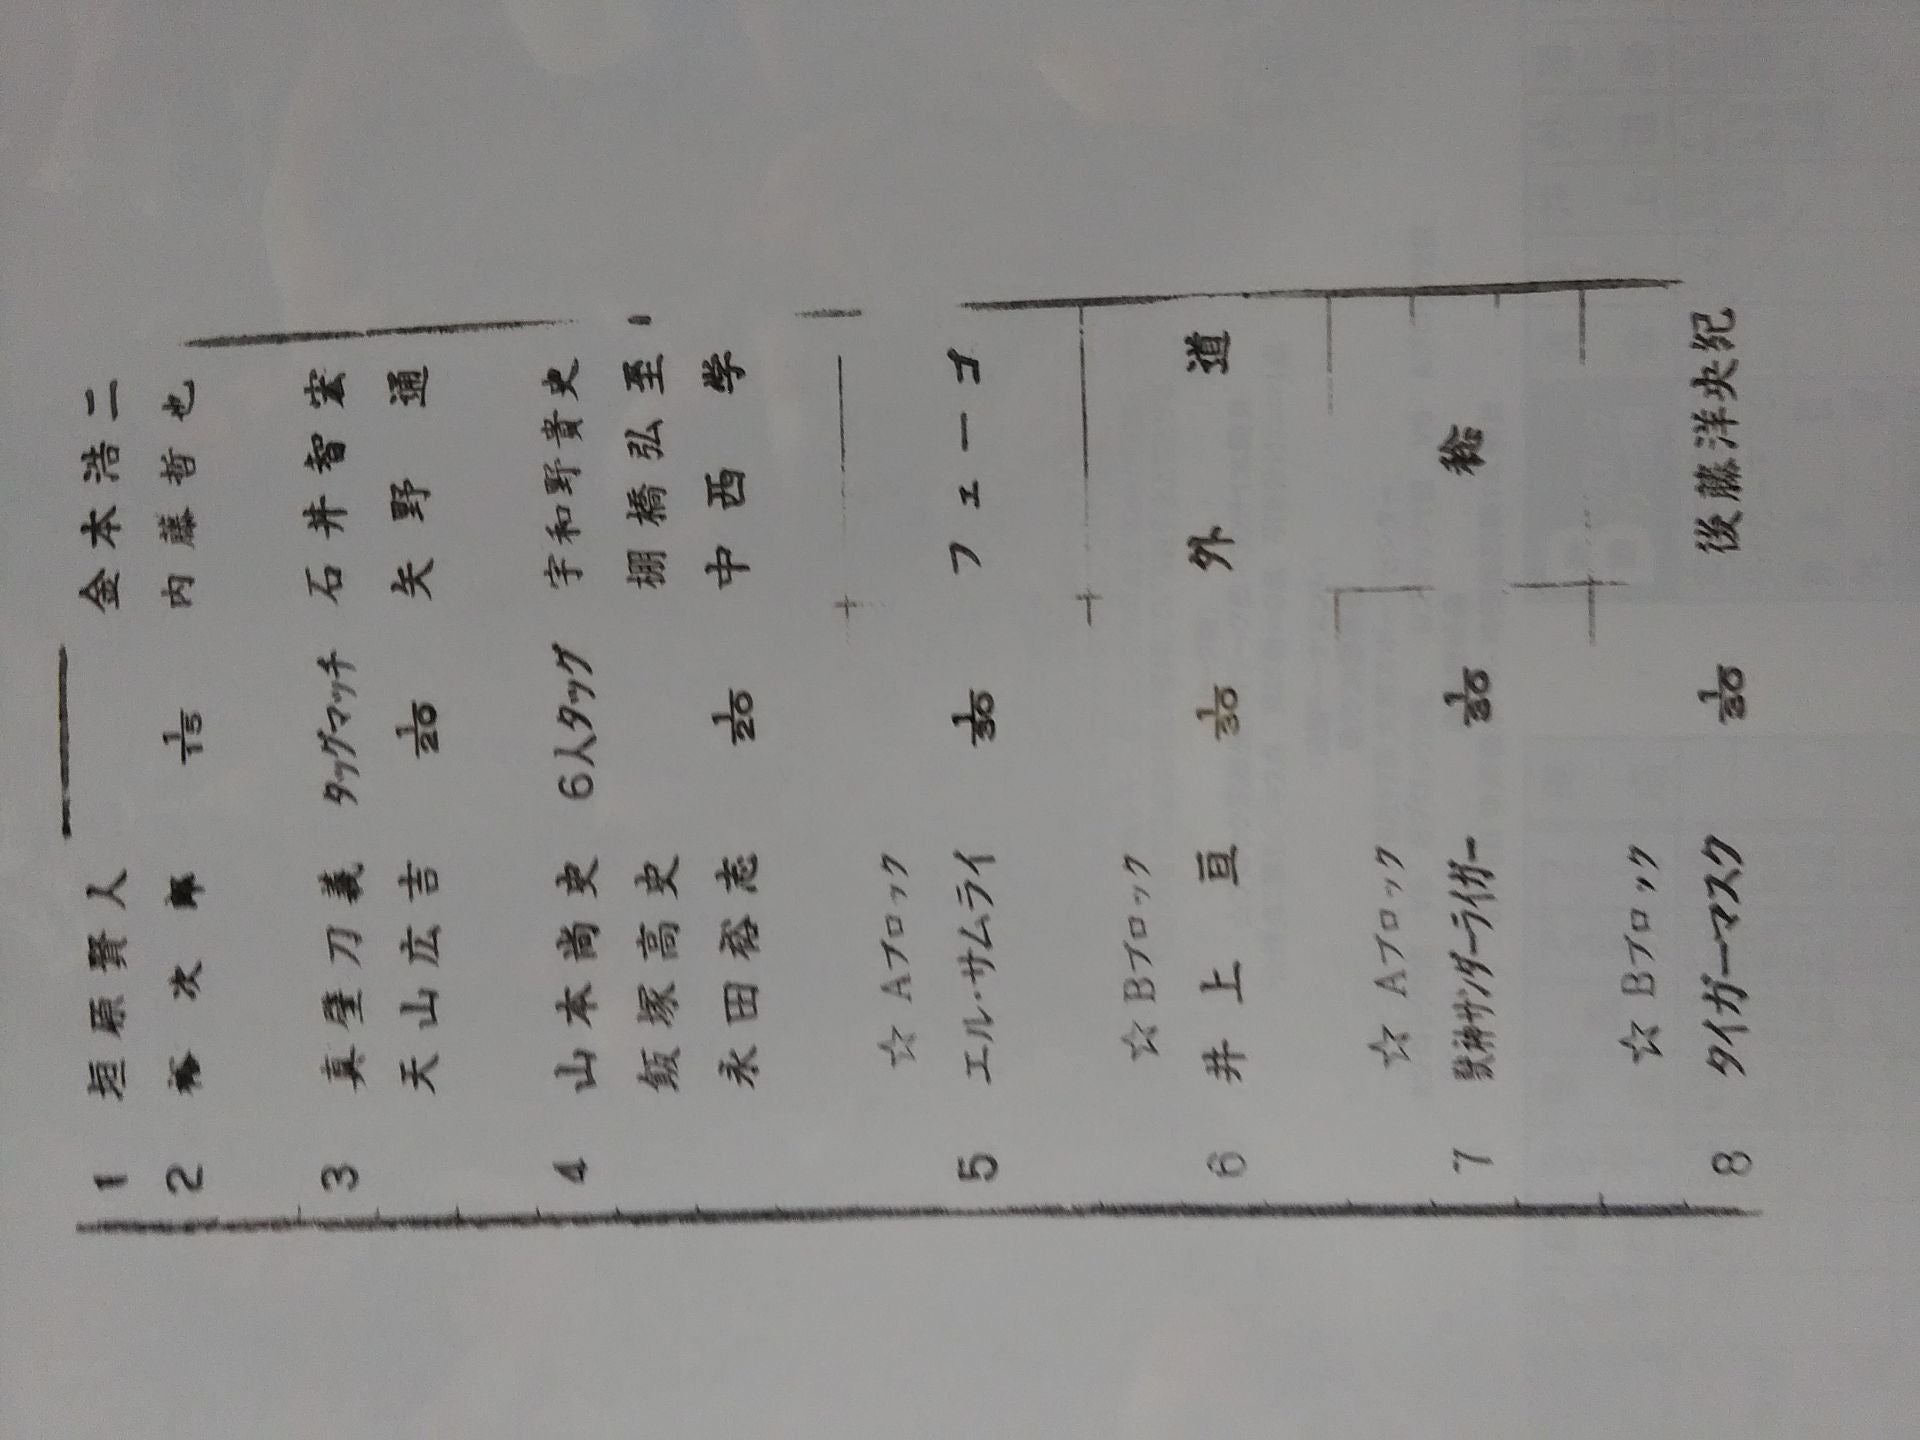 1 垣原賢人 金本浩二
2 裕次郎 1/15 内藤哲也
タッグマッチ
3 真壁刀義 石井智宏
天山広吉 1/20 矢野通
6人タッグ
4 山本尚史 宇和野貴史
飯塚高史 棚橋弘至
永田裕志 1/20 中西学
☆Aブロック
5 エル・サムライ 1/30 フェーゴ
☆Bブロック
6 井上亘 1/30 外道
☆Aブロック
7 獣神サンダーライガー 1/30 稔
☆Bブロック
8 タイガーマスク 1/30 後藤洋央紀